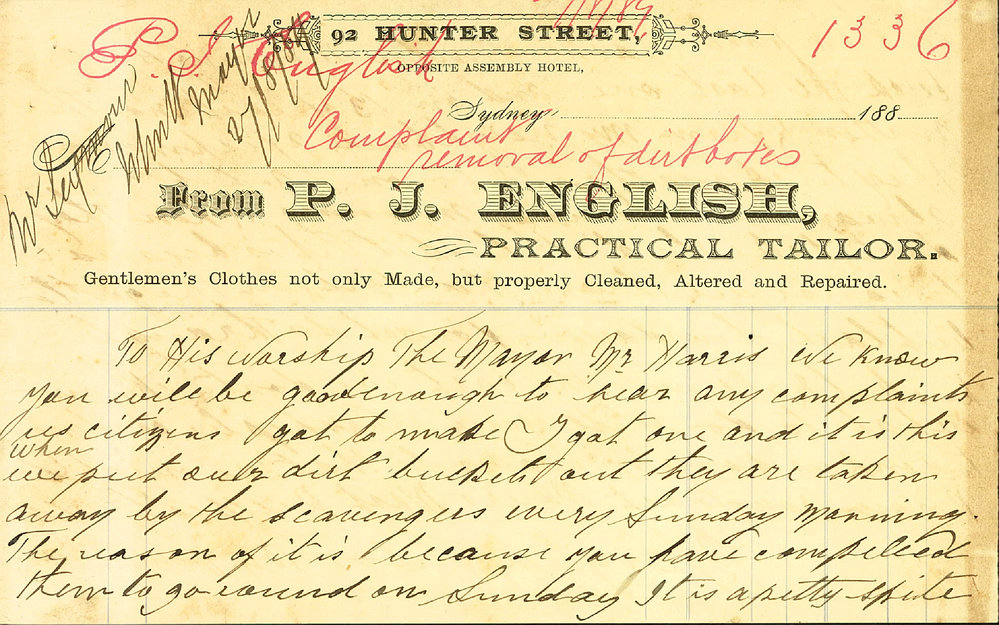 92 HUNTER STREET,
OPPOSITE ASSEMBLY HOTEL,
1336
P. J. English
Mr Seymour
Mayor
27/8/84
Sydney, 188
Complaint
removal of dirt boxes
From P. J. ENGLISH,
PRACTICAL TAILOR.
Gentlemen's Clothes not only Made, but properly Cleaned, Altered and Repaired.
To His Worship The Mayor Mr Harris We know
you will be good enough to hear any complaints
us citizens got to make I got one and it is this
when
we put our dirt buckets out they are taken
away by the scavengers every Sunday morning.
The reason of it is because you have compelled
them to go round on Sunday It is a petty spite